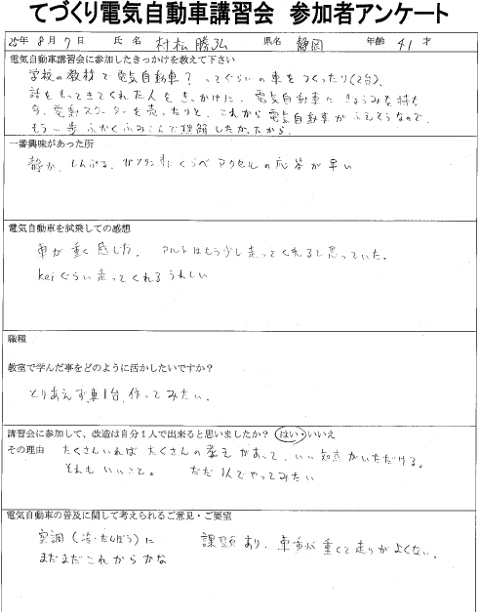 てづくり電気自動車講習会 参加者アンケート
25年 8月 7日 氏名 村松 勝弘 県名 静岡 年齢 41才
電気自動車講習会に参加したきっかけを教えて下さい
学校の教材で電気自動車? ってぐらいの車をつくったり(2台)
話をもってきてくれた人をきっかけに、電気自動車にきょうみを持ち
今、電動スクーターを売ったりと、これから電気自動車がふえてそうなので、
もう一歩ふかくふみこんで理解したかったから
一番興味があった所
静か、しんぷる、ガソリン車にくらべアクセルの応答が早い
電気自動車を試乗しての感想
車が重く感じた。 アルトはもう少し走ってくれると思っていた。
keiぐらい走ってくれるうれしい
職種
教室で学んだ事をどのように活かしたいですか?
とりあえず、車1台、作ってみたい。
講習会に参加して、改造は自分1人で出来ると思いましたか? はい・いいえ
その理由 たくさんいれば たくさんの考えがあって、いい知恵がいただける。
それもいいこと。 ただ1人でやってみたい
電気自動車の普及に関して考えられるご意見・ご要望
空調(冷・だんぼう)に 課題あり、車重が重くて走りがよくない。
まだまだこれからかな